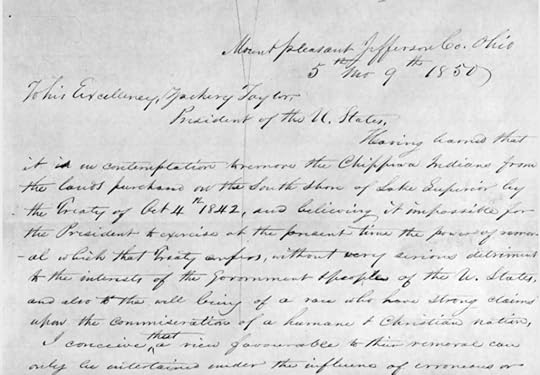 Mount pleasant Jefferson Co. Ohio
5th Mo 9th 1850
To his Excellency, Zachery Taylor,
President of the U. States,
Having learned that
it is in contemplation to remove the Chippiwa Indians from
the lands purchased on the South Shore of Lake Superior by
the Treaty of Oct 4th 1842, and believing it impossible for
the President to exercise at the present time the power of remov
-al which that Treaty confers, without very serious detriment
to the interests of the Government & people of the U. States,
and also to the well being of a race who have strong claims
upon the commiseration of a humane & Christian nation,
I conceive that a view favourable to their removal can
only be entertained under the influence of erroneous or